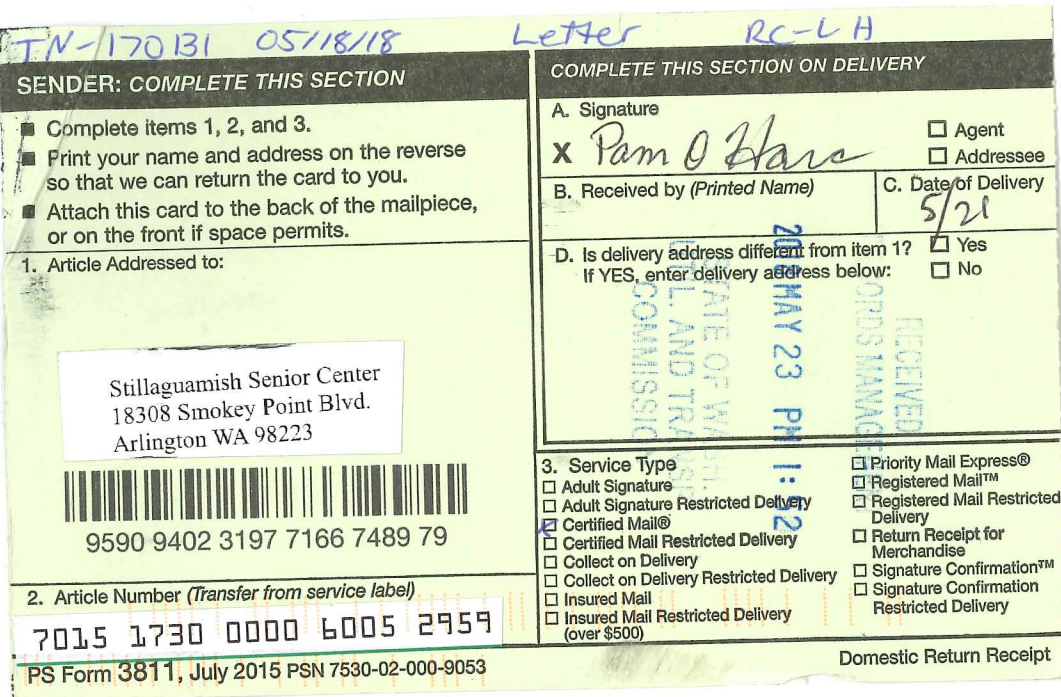 TN-170131 05/18/18 Letter RC-LH
SENDER: COMPLETE THIS SECTION
■ Complete items 1, 2, and 3.
■ Print your name and address on the reverse
so that we can return the card to you.
■ Attach this card to the back of the mailpiece,
or on the front if space permits.
1. Article Addressed to:
Stillaguamish Senior Center
18308 Smokey Point Blvd.
Arlington WA 98223
9590 9402 3197 7166 7489 79
2. Article Number (Transfer from service label)
7015 1730 0000 6005 2959
PS Form 3811, July 2015 PSN 7530-02-000-9053
COMPLETE THIS SECTION ON DELIVERY
A. Signature
X Pam O Hare
☐ Agent
☐ Addressee
B. Received by (Printed Name)
C. Date of Delivery
5/21
D. Is delivery address different from item 1? ☐ Yes
If YES, enter delivery address below: ☐ No
RECEIVED
2018 MAY 23 PM 1:52
STATE OF WASH.
COMMISSIO
3. Service Type
☐ Adult Signature
☐ Adult Signature Restricted Delivery
☒ Certified Mail®
☐ Certified Mail Restricted Delivery
☐ Collect on Delivery
☐ Collect on Delivery Restricted Delivery
☐ Insured Mail
☐ Insured Mail Restricted Delivery
(over $500)
☐ Priority Mail Express®
☐ Registered Mail™
☐ Registered Mail Restricted
Delivery
☐ Return Receipt for
Merchandise
☐ Signature Confirmation™
☐ Signature Confirmation
Restricted Delivery
Domestic Return Receipt